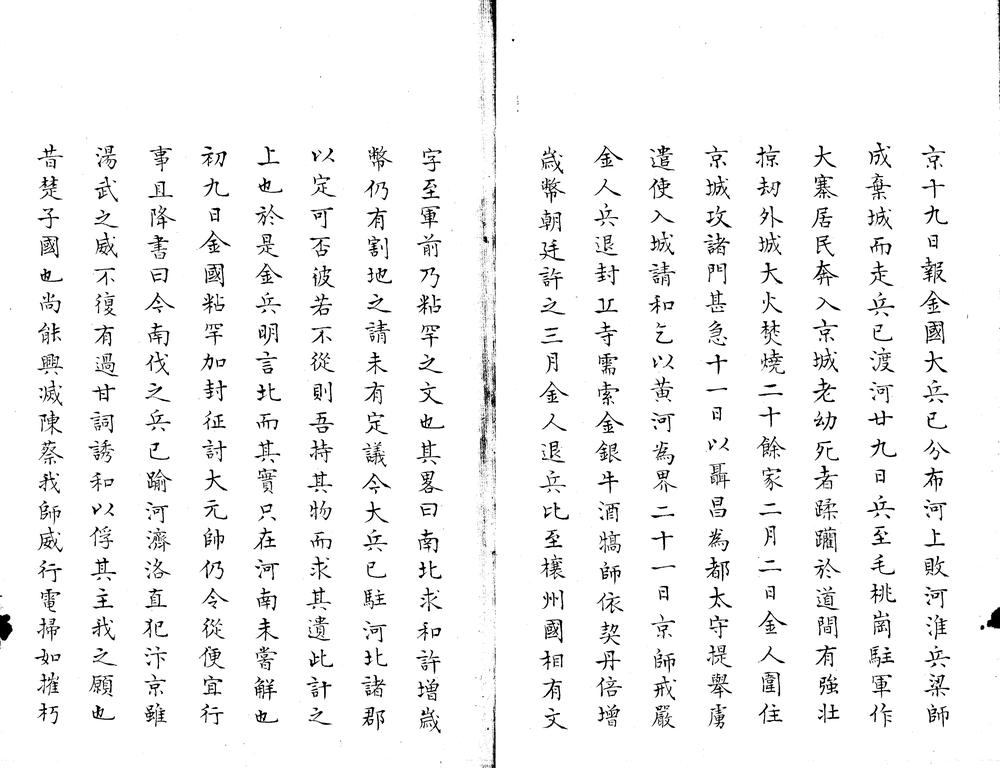 京十九日報金國大兵已分布河上敗河淮兵梁師
成棄城而走兵已渡河廿九日兵至毛桃崗駐軍作
大寨居民奔入京城老幼死者蹂躪於道間有強壯
掠刼外城大火焚燒二十餘家二月二日金人圍住
京城攻諸門甚急十一日以聶昌為都太守提舉虜
遣使入城請和乞以黄河為界二十一日京師戒嚴
金人兵退封丘寺需索金銀牛酒犒師依契丹倍增
歳幣朝廷許之三月金人退兵比至欀州國相有文
字至軍前乃粘罕之文也其畧曰南北求和許增歳
幣仍有割地之請未有定議今大兵已駐河北諸郡
以定可否彼若不從則吾持其物而求其遺此計之
上也於是金兵明言北而其實只在河南未嘗解也
初九日金國粘罕加封征討大元帥仍令從便宜行
事且降書曰今南伐之兵已踰河濟洛直犯汴京雖
湯武之威不復有過甘詞誘和以俘其主我之願也
昔楚子國也尚能興滅陳蔡我師威行電掃如摧朽